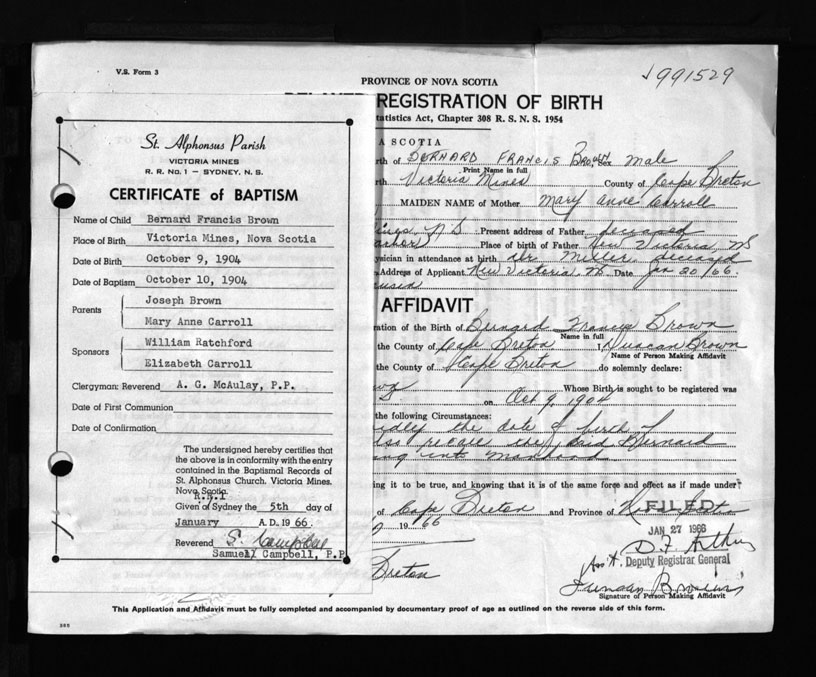 V.S. Form 3
PROVINCE OF NOVA SCOTIA
991529
REGISTRATION OF BIRTH
tatistics Act, Chapter 308 R. S. N. S. 1954
St. Alphonsus Parish
VICTORIA MINES
R. R. No. 1 — SYDNEY, N. S.
CERTIFICATE OF BAPTISM
Name of Child Bernard Francis Brown
Place of Birth Victoria Mines, Nova Scotia
Date of Birth October 9, 1904
Date of Baptism October 10, 1904
Parents Joseph Brown
Mary Anne Carroll
Sponsors William Ratchford
Elizabeth Carroll
Clergyman: Reverend A. G. McAulay, P.P.
Date of First Communion
Date of Confirmation
The undersigned hereby certifies that
the above is in conformity with the entry
contained in the Baptismal Records of
St. Alphonsus Church. Victoria Mines.
Nova Scotia.
R.R.1
Given at Sydney the 5th day of
January A. D. 19 66.
Reverend S. Campbell
Samuell Campbell, P.P
A SCOTIA
rth of BERNARD FRANCIS Brown Sex Male
Print Name in full
rth Victoria Mines County of Cape Breton
MAIDEN NAME of Mother Mary Anne Carroll
N S Present address of Father deceased
Place of birth of Father New Victoria, NS
ysician in attendance at birth Dr Miller, deceased
Address of Applicant New Victoria, NS Date Jan 20/66.
AFFIDAVIT
ration of the Birth of Bernard Francis Brown
Name in full
the County of Cape Breton I, Duncan Brown
Name of Person Making Affidavit
the County of Cape Breton do solemnly declare:
Whose Birth is sought to be registered was
on Oct 9, 1904
the following Circumstances:
the date of birth of
recall the said Bernard
ing into manhood
ing it to be true, and knowing that it is of the same force and effect as if made under
of Cape Breton and Province of Nova Scotia
FILED
1966
JAN 27 1966
Ass't. Deputy Registrar General
Breton
Duncan Brown
Signature of Person Making Affidavit
This Application and Affidavit must be fully completed and accompanied by documentary proof of age as outlined on the reverse side of this form.